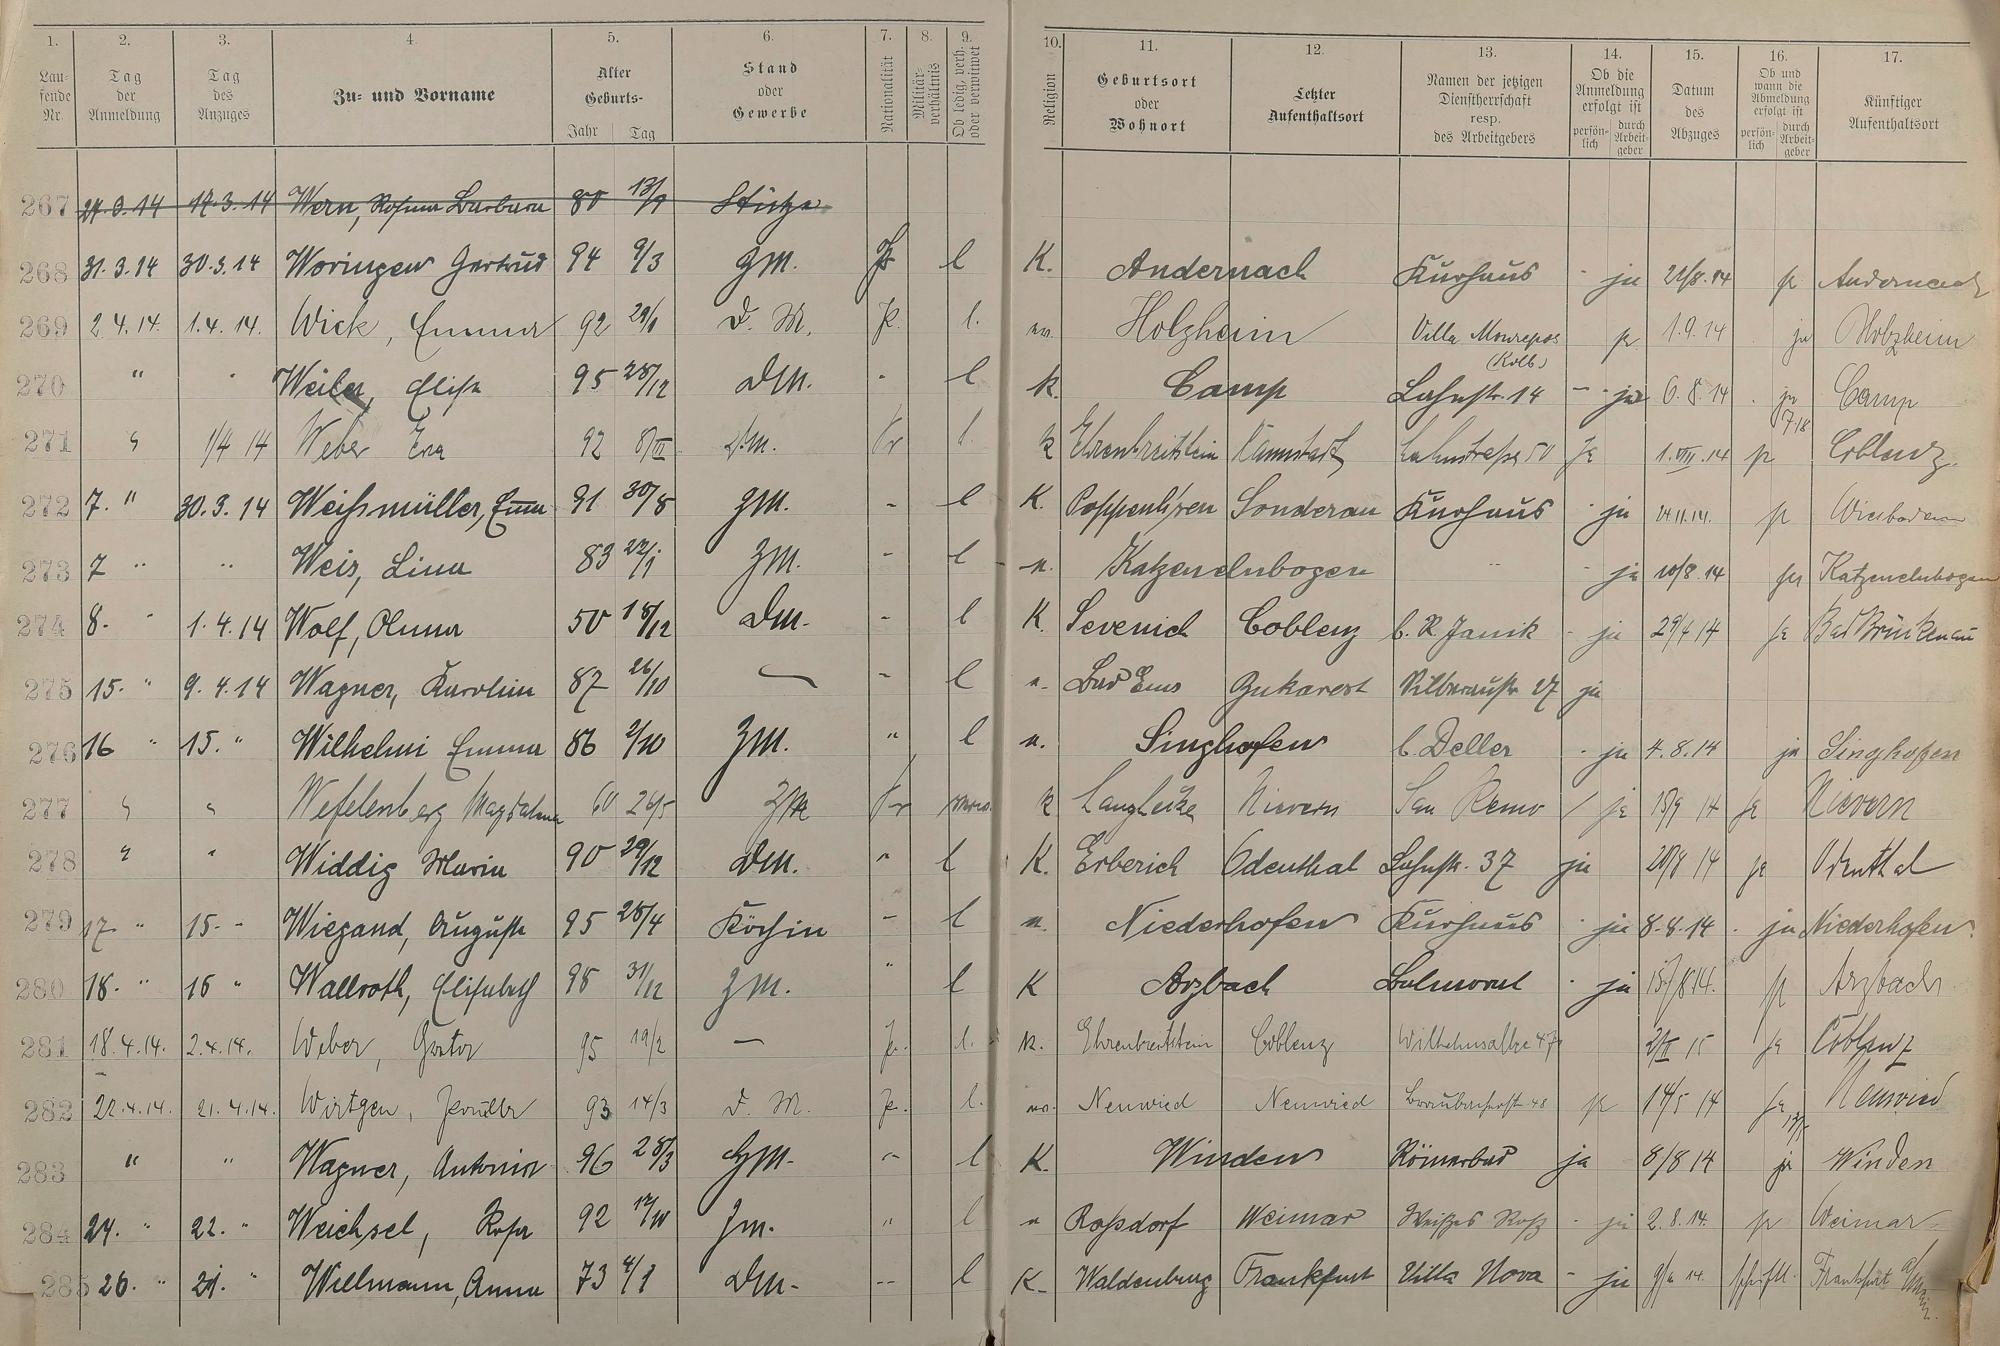 1. 2. 3. 4. 5. 6. 7. 8. 9. 10. 11. 12. 13. 14. 15. 16. 17.
Laufende Nr. Tag der Anmeldung Tag des Anzuges Zu- und Vorname Alter Geburts- Jahr Tag Stand oder Gewerbe Nationalität Militärverhältnis Ob ledig, verh. oder verwitwet Religion Geburtsort oder Wohnort Letzter Aufenthaltsort Namen der jetzigen Dienstherrschaft resp. des Arbeitgebers Ob die Anmeldung erfolgt ist persönlich durch Arbeitgeber Datum des Abzuges Ob und wann die Abmeldung erfolgt ist persönlich durch Arbeitgeber Künftiger Aufenthaltsort
267 17.3.14 Wern, Rosina Barbara 80 Stütze
268 31.3.14 30.3.14 Woringen Gertrud 94 9/3 ZM. Pr l K. Andernach Kurhaus - ja 21/8.14 ja Andernach
269 2.4.14. 1.4.14. Wick, Emma 92 29/1 D. M. Pr. l. ev. Holzheim Villa Monrepos (Kolb) ja 1.9.14 ja Holzheim
270 " " Weiler, Elise 95 28/12 DM. - l k. Camp Lahnstr. 14 - ja 6.8.14 ja Camp
271 " 1/4 14 Weber Erna 92 8/III DM. Pr l. k Ehrenbreitstein Lahnstraße 50 Ja 1.VIII.14 ja 7/8 Coblenz.
272 7. " 30.3.14 Weißmüller, Emma 91 30/8 ZM. - l K. Sonderau Kurhaus - ja 24.11.14. ja Wiesbaden
273 7 " " Weis, Lina 83 22/1 ZM. - l - e. Katzenelnbogen " - ja 10/8.14 ja Katzenelnbogen
274 8. " 1.4.14 Wolf, Anna 50 18/12 DM. - l K. Sevenich Coblenz b. R. Janik - ja 29/4 14 ja Bad Brückenau
275 15. " 9.4.14 Wagner, Karolin 87 26/10 - - l e. Bad Ems Bukarest 27 ja
276 16 " 15. " Wilhelmi Emma 86 2/10 ZM. " l e. Singhofen b. Deller - ja 4.8.14 ja Singhofen
277 " " Wefelenberg Magdalena 60 26/5 Pr k Langhecke Nievern San Remo / ja 15/9 14 ja Nievern
278 " " Widdig Maria 90 29/12 DM. " l K. Erberich Odenthal Lahnstr. 37 ja 20/8 14 ja Odenthal
279 17 " 15. - Wiegand, Auguste 95 28/4 Köchin - l e. Niederhofen Kurhaus - ja 8.8.14 - ja Niederhofen.
280 18. " 16 " Wallroth, Elisabeth 98 31/12 ZM. " l K Arzbach Balmoral - ja 15/8 14. ja Arzbach
281 18.4.14. 2.4.14. Weber, Greta 95 19/2 — Pr. l. K. Ehrenbreitstein Coblenz Wilhelmsallee 47 2/II 15 ja Coblenz
282 22.4.14. 21.4.14. Wirtgen, 93 14/3 D. M. Pr. l. ev. Neuwied Neuwied 48 ja 14/5 14 ja Neuwied
283 " " Wagner, Antonia 96 28/3 ZM. - l K. Winden Römerbad ja 8/8 14 ja Winden
284 24. " 22. " Weichsel, Rosa 92 12/10 ZM. " l e Roßdorf Weimar Weißes Roß - ja 2.8.14. ja Weimar
285 26. " 21. " Willmann, Anna 73 4/1 DM - -- l K - Waldenburg Frankfurt Villa Nova - ja 9/6 14. schriftl. Frankfurt a/Main.